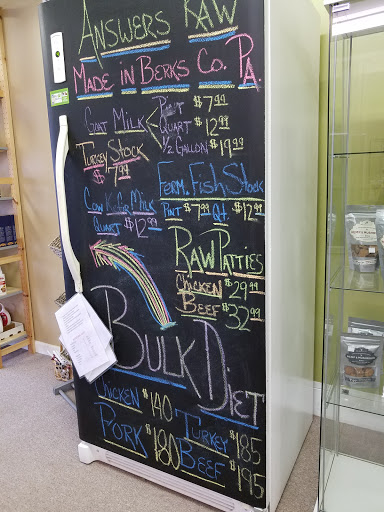 Answers Raw
Made in Berks Co. PA.
Goat Milk < Pint $7.99
Quart $12.99
1/2 Gallon $19.99
Turkey Stock
$7.99
Ferm. Fish Stock
Pint $7.99 Qt. $12.99
Cow Kefir Milk
Quart $12.99
Raw Patties
Chicken $29.99
Beef $32.99
Bulk Diet
Chicken $140
Pork $180
Turkey $185
Beef $195